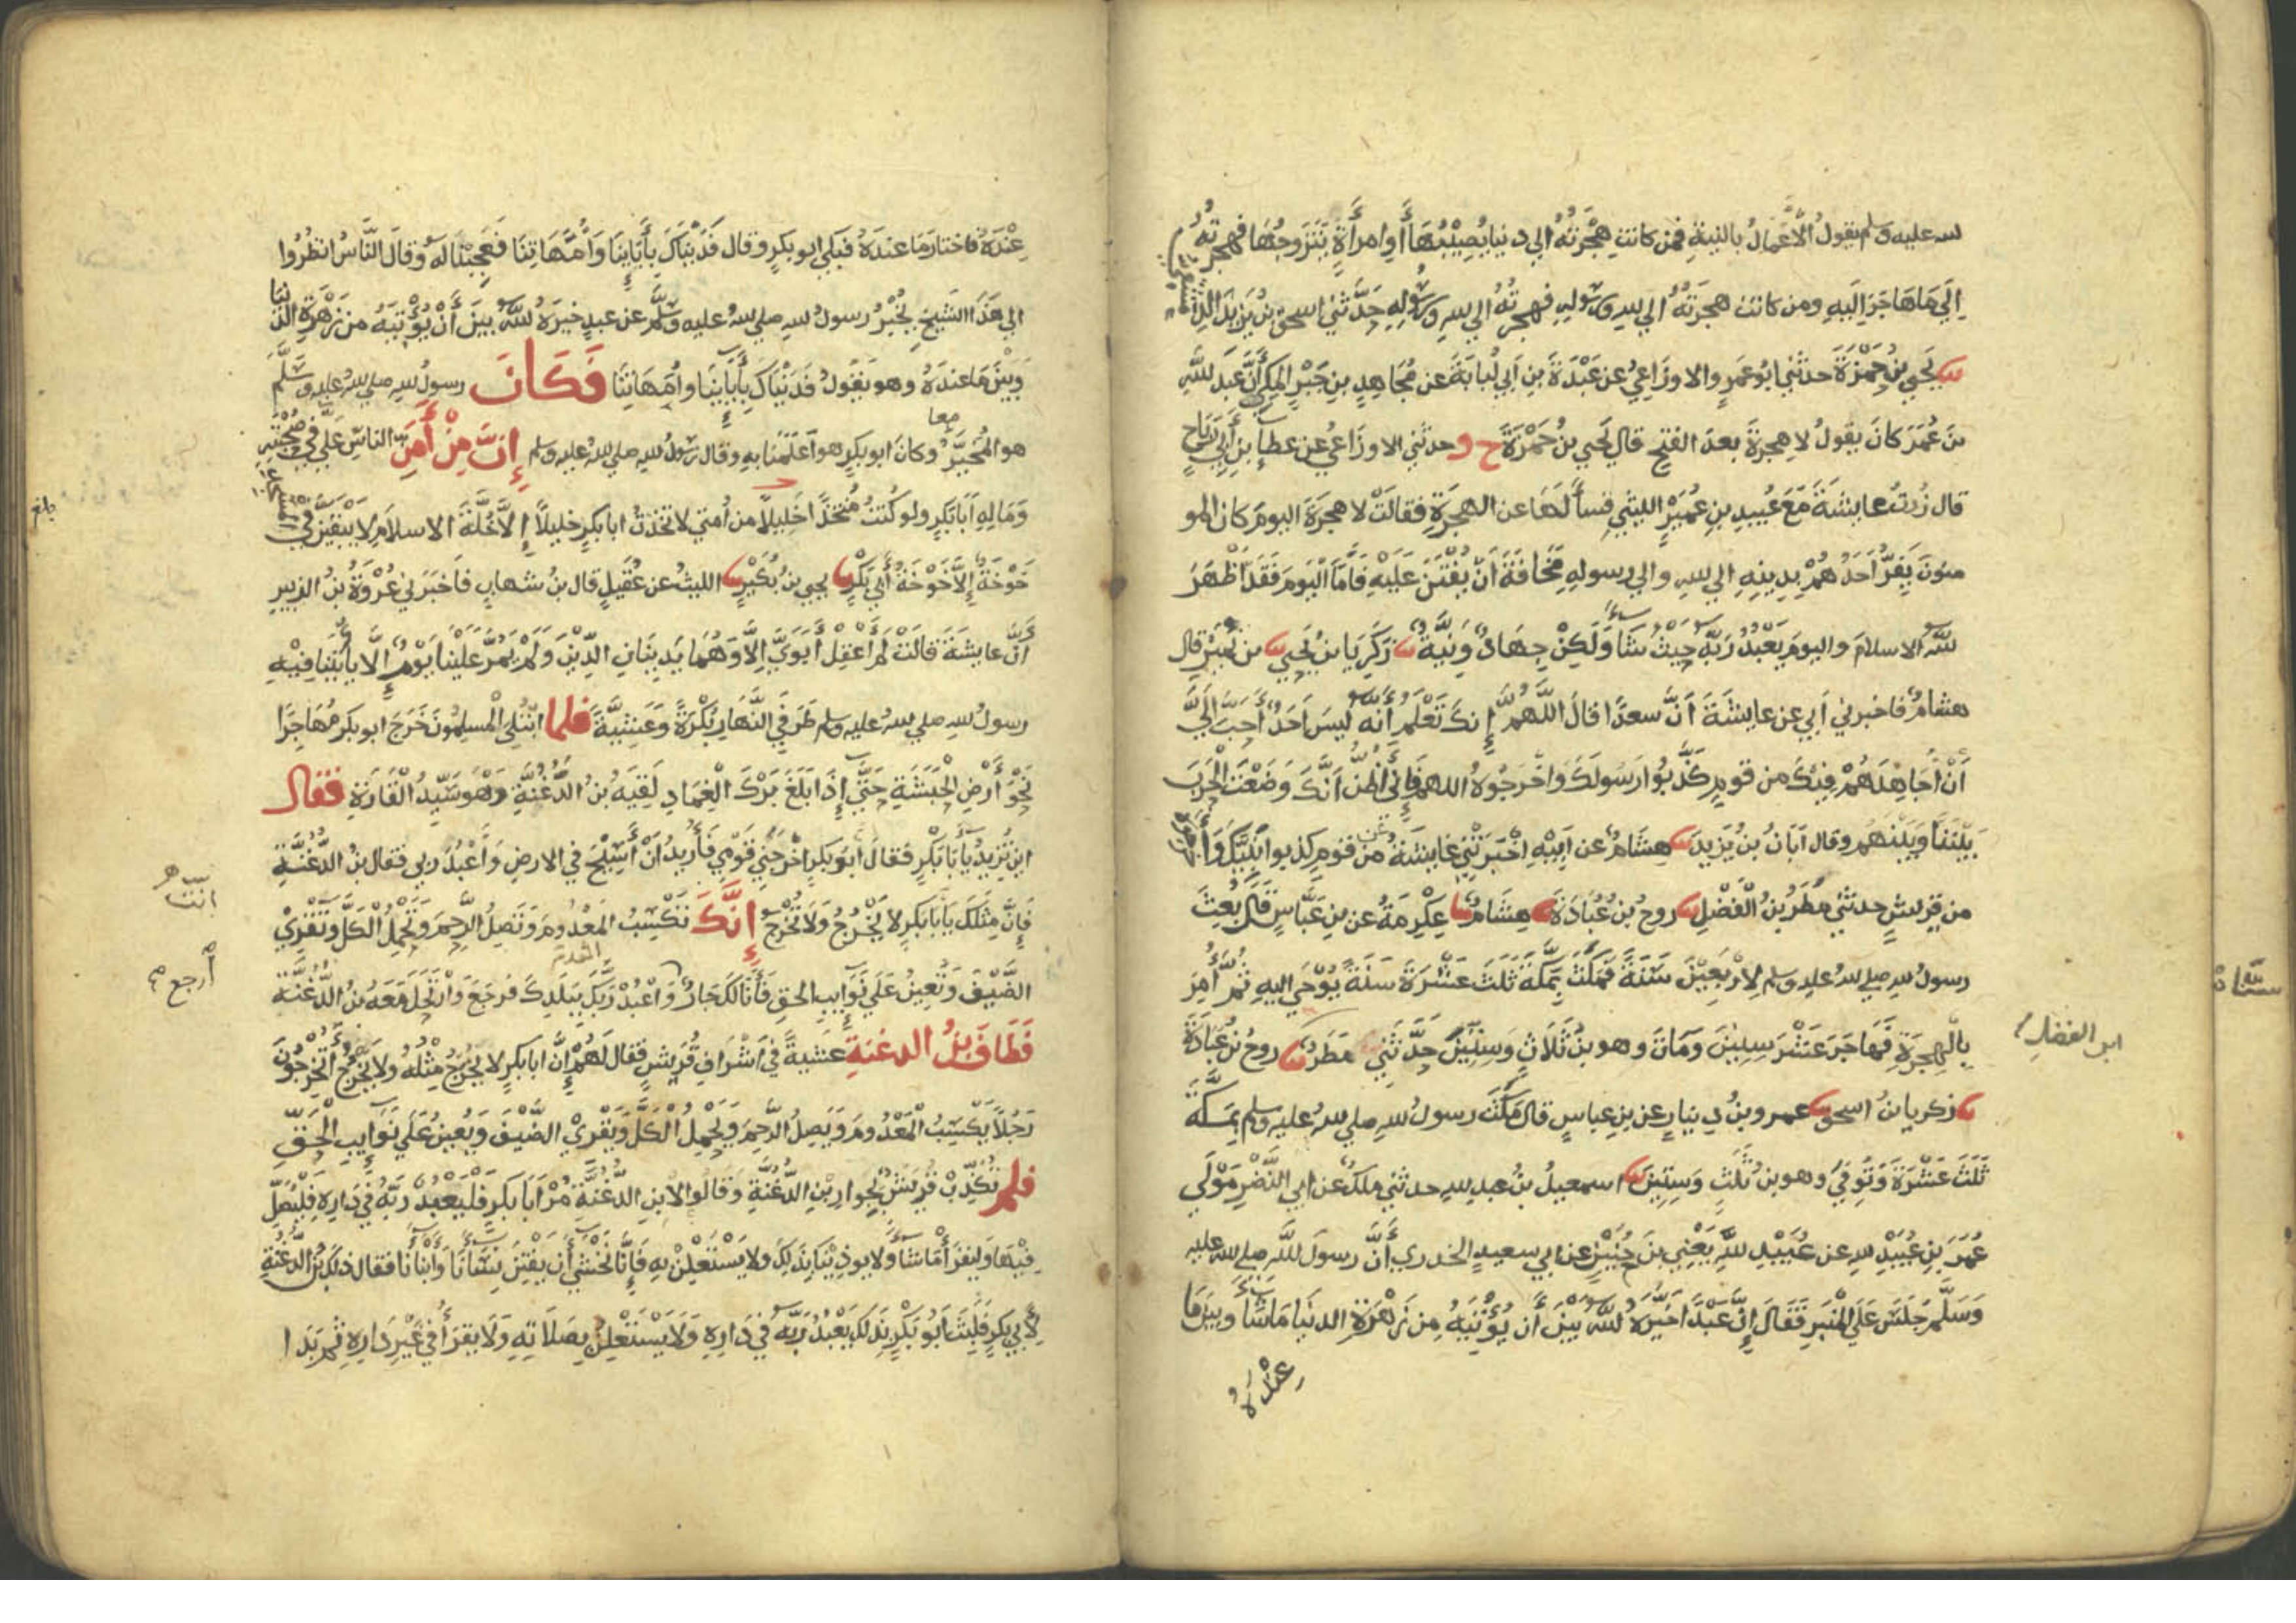 لله عليه وسلم يقول الأعمال بالنية فمن كانت هجرته الى دنيا يصيبها أو امرأة يتزوجها فهجرته
إلى ما هاجر اليه ومن كانت هجرته الى لله ورسوله فهجرته الى لله ورسوله حدثني اسحق بن يزيد الدمشقي
يحيى بن حمزة حدثني ابو عمرو الاوزاعي عن عبدة بن أبي لبابة عن مجاهد بن جبر المكي أن عبد لله
بن عمر كان يقول لا هجرة بعد الفتح قال يحيى بن حمزة ح وحدثني الاوزاعي عن عطاء بن أبي رباح
قال زرت عايشة مع عبيد بن عمير الليثي فسألها عن الهجرة فقالت لا هجرة اليوم كان المو
منون يفر أحدهم بدينه الى لله والى رسوله مخافة أن يفتن عليه فاما اليوم فقد أظهر
لله الاسلام واليوم يعبد ربه حيث شاء ولكن جهاد ونية زكريا بن يحيى بن نمير قال
هشام فاخبرني أبي عن عايشة أن سعدا قال اللهم إنك تعلم أنه ليس أحد أحب إلي
أن أجاهدهم فيك من قوم كذبوا رسولك واخرجوه اللهم فاني أظن أنك وضعت الحرب
بيننا وبينهم وقال أبان بن يزيد هشام عن أبيه اخبرتني عايشة من قوم كذبوا نبيك وأخرجوه
من قريش حدثني مطر بن الفضل روح بن عبادة هشام عكرمة عن بن عباس قال بعث
رسول لله صلى لله عليه وسلم لاربعين سنة فمكث بمكة ثلث عشرة سنة يوحى اليه ثم أمر
بالهجرة فهاجر عشر سنين ومات وهو بن ثلاث وستين حدثني مطر روح بن عبادة
ابن الفضل
زكريا بن اسحق عمرو بن دينار عن بن عباس قال مكث رسول لله صلى لله عليه وسلم بمكة
ثلث عشرة وتوفي وهو بن ثلث وستين اسمعيل بن عبد لله حدثني ملك عن أبي النضر مولى
عمر بن عبيد لله عن عبيد لله يعني بن حنين عن أبي سعيد الخدري أن رسول لله صلى لله عليه
وسلم جلس على المنبر فقال إن عبدا خيره لله بين أن يؤتيه من زهرة الدنيا ما شاء وبين ما
عنده
عنده فاختار ما عنده فبكى ابو بكر وقال فديناك بأباينا وأمهاتنا فعجبنا له وقال الناس انظروا
الى هذا الشيخ يخبر رسول لله صلى لله عليه وسلم عن عبد خيره لله بين أن يؤتيه من زهرة الدنيا
وبين ما عنده وهو يقول فديناك بأباينا وأمهاتنا فكان رسول لله صلى لله عليه وسلم
هو المخير وكان ابو بكر هو أعلمنا به وقال رسول لله صلى لله عليه وسلم إن من أمن الناس علي في صحبته
معا
وماله أبا بكر ولو كنت متخذا خليلا من أمتي لاتخذت ابا بكر خليلا إلا خلة الاسلام لا يبقين في المسجد
بلغ
خوخة إلا خوخة أبي بكر يحيى بن بكير الليث عن عقيل قال بن شهاب فاخبرني عروة بن الزبير
أن عايشة قالت لم أعقل أبوي إلا وهما يدينان الدين ولم يمر علينا يوم إلا يأتينا فيه
رسول لله صلى لله عليه وسلم طرفي النهار بكرة وعشية فلما ابتلي المسلمون خرج ابو بكر مهاجرا
نحو أرض الحبشة حتى إذا بلغ برك الغماد لقيه بن الدغنة وهو سيد القارة فقال
اين تريد يا أبا بكر فقال أبو بكر اخرجني قومي فأريد أن أسيح في الارض وأعبد ربي فقال بن الدغنة
فإن مثلك يا أبا بكر لا يخرج ولا تخرج إنك تكسب المعدوم وتصل الرحم وتحمل الكل وتقري
انت
الضيف وتعين على نوايب الحق فأنا لك جار وأعبد ربك ببلدك فرجع وارتحل معه بن الدغنة
أرجع
فطاف بن الدغنة عشية في أشراف قريش فقال لهم إن ابا بكر لا يخرج مثله ولا يخرج أتخرجون
رجلا يكسب المعدوم ويصل الرحم ويحمل الكل ويقري الضيف ويعين على نوايب الحق
فلم تكذب قريش بجوار بن الدغنة وقالوا لابن الدغنة مر أبا بكر فليعبد ربه في داره فليصل
فيها وليقرأ ما شاء ولا يوذينا بذلك ولا يستعلن به فإنا نخشى أن يفتن نساءنا وأبناءنا فقال ذلك بن الدغنة
لأبي بكر فلبث أبو بكر بذلك يعبد ربه في داره ولا يستعلن بصلاته ولا يقرأ في غير داره ثم بدا